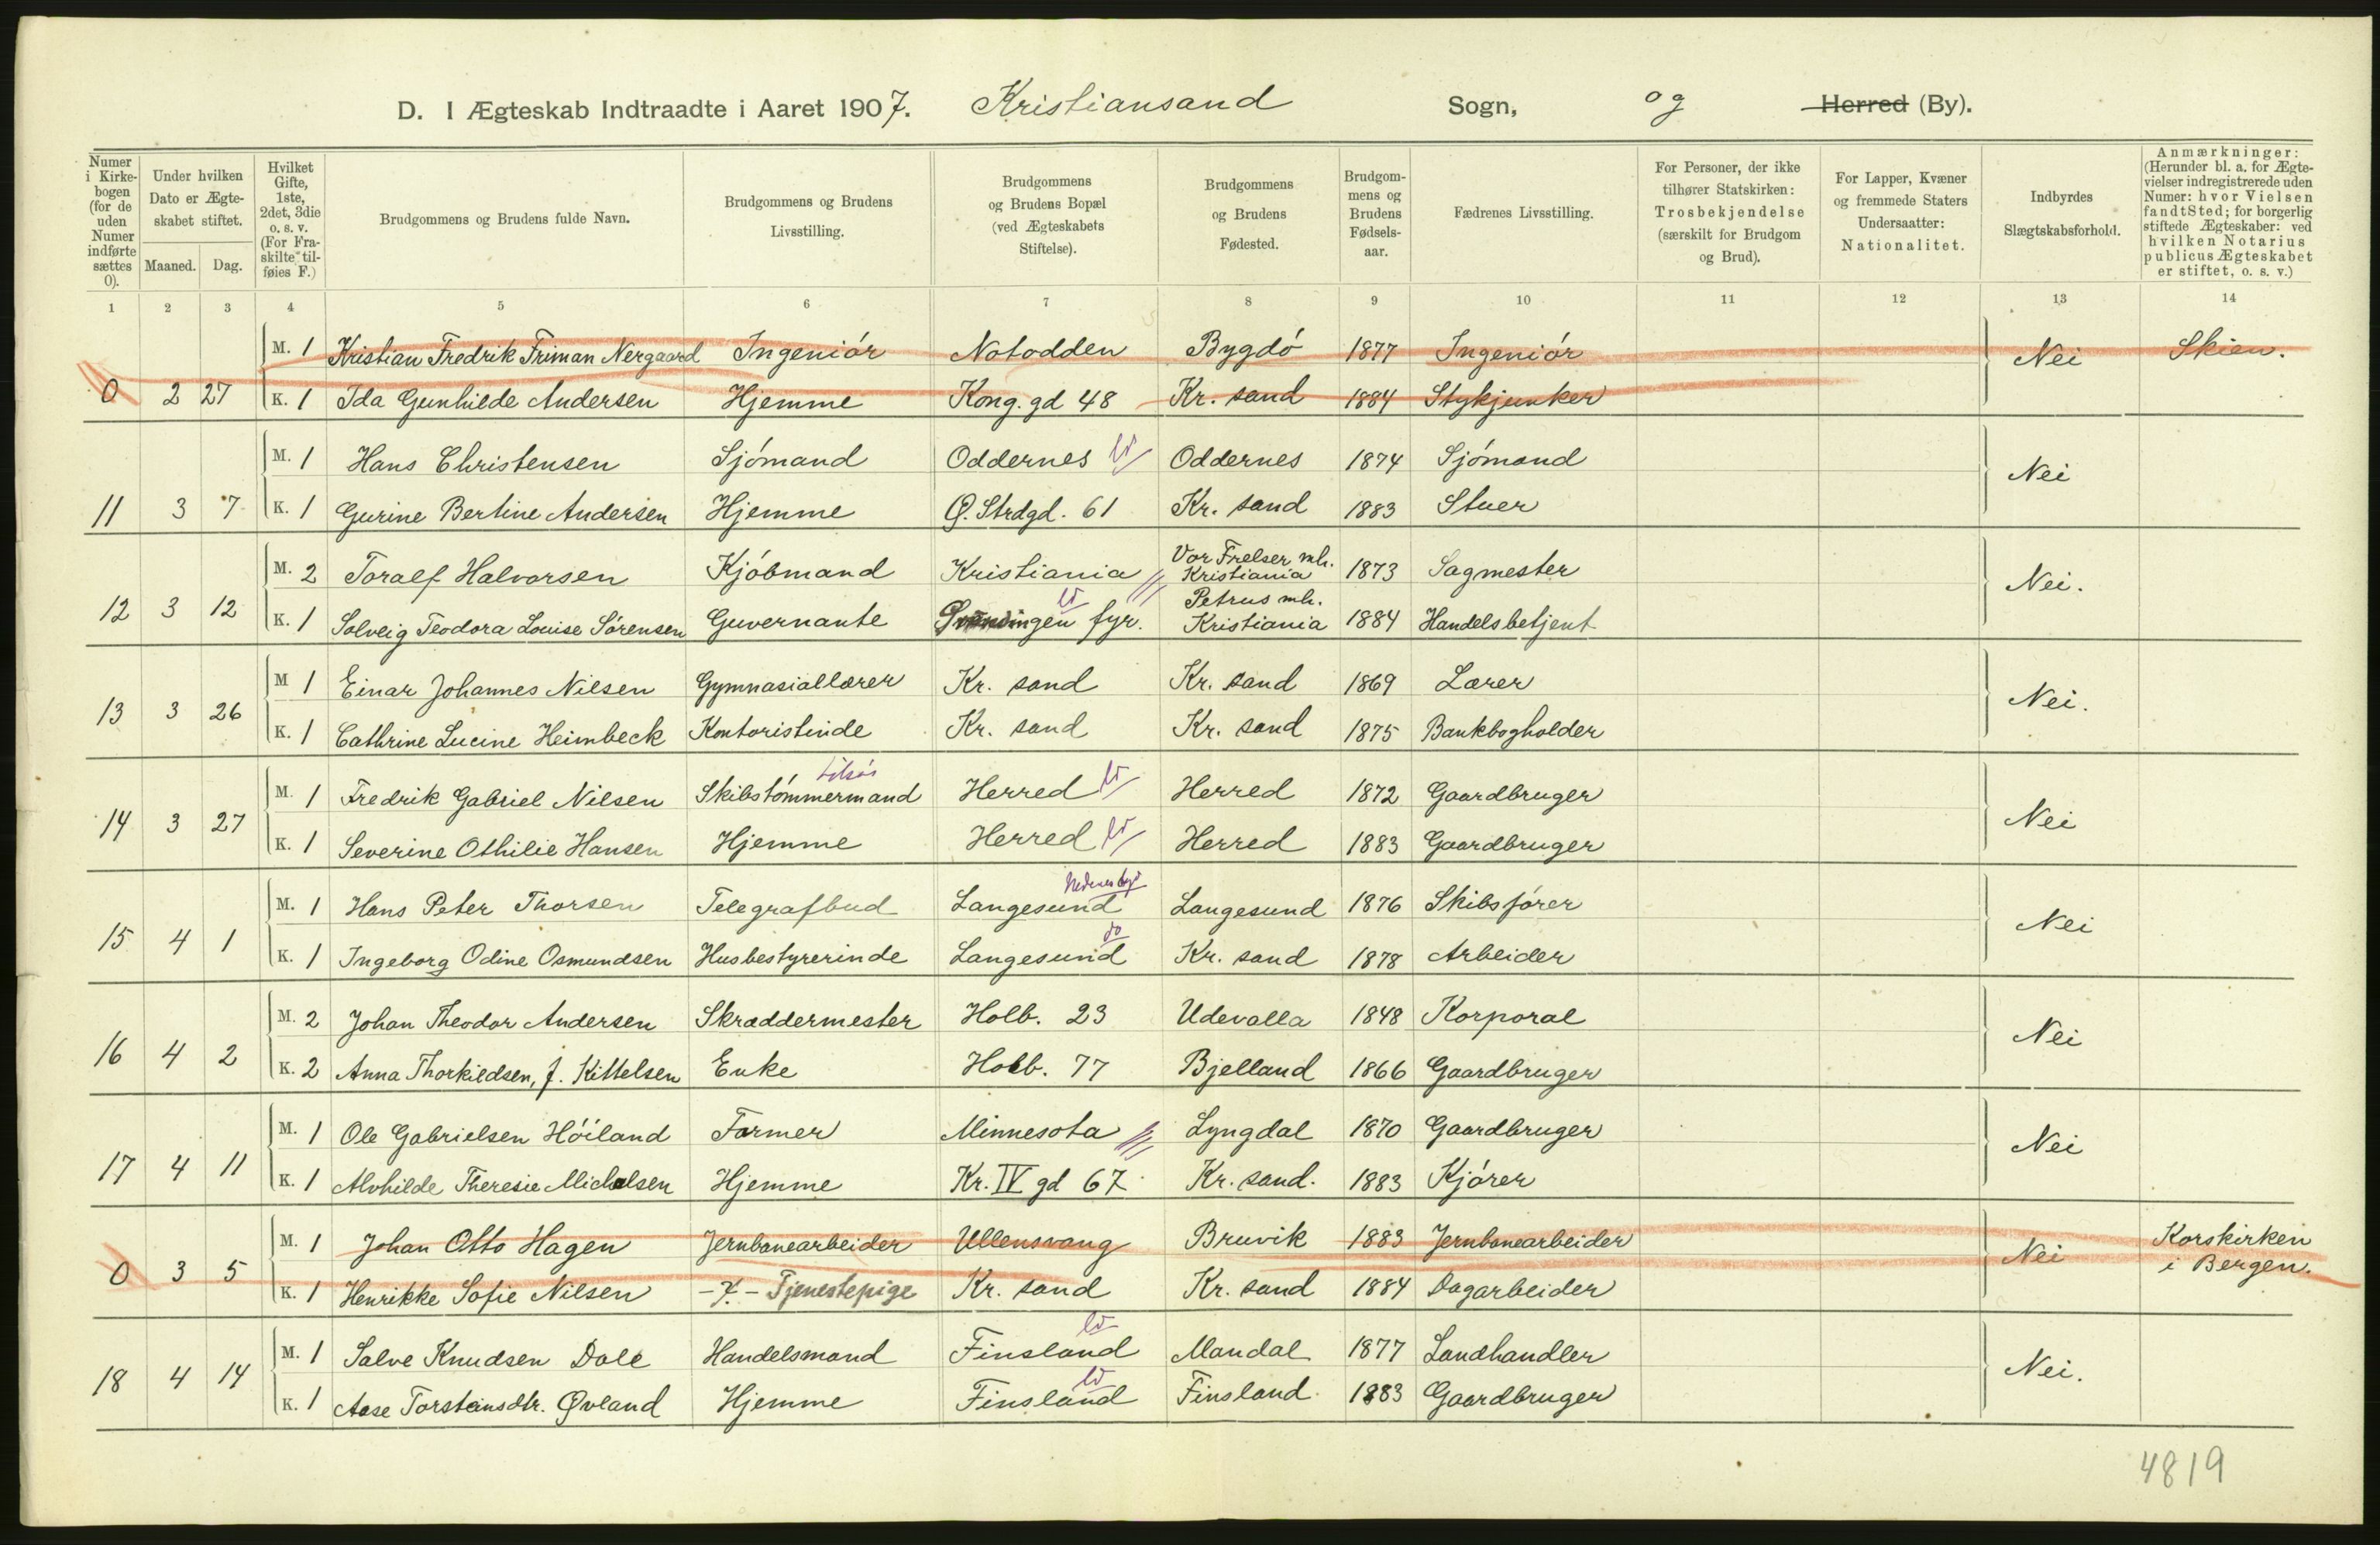 D. I Ægteskab Indtraadte i Aaret 1907. Kristiansand Sogn, og Herred (By).
Numer i Kirkebogen (for de uden Numer indførte sættes 0). Under hvilken Dato er Ægteskabet stiftet. Maaned. Dag. Hvilket Gifte, 1ste, 2det, 3die o. s. v. (For Fraskilte tilføies F.) Brudgommens og Brudens fulde Navn. Brudgommens og Brudens Livsstilling. Brudgommens og Brudens Bopæl (ved Ægteskabets Stiftelse). Brudgommens og Brudens Fødested. Brudgommens og Brudens Fødselsaar. Fædrenes Livsstilling. For Personer, der ikke tilhører Statskirken: Trosbekjendelse (særskilt for Brudgom og Brud). For Lapper, Kvæner og fremmede Staters Undersaatter: Nationalitet. Indbyrdes Slægtskabsforhold. Anmærkninger: (Herunder bl. a. for Ægtevielser indregistrerede uden Numer: hvor Vielsen fandt Sted; for borgerlig stiftede Ægteskaber: ved hvilken Notarius publicus Ægteskabet er stiftet, o. s. v.)
1 2 3 4 5 6 7 8 9 10 11 12 13 14
M. 1 Kristian Fredrik Friman Nergaard Ingeniör Notodden Bygdö 1877 Ingeniör Nei Skien.
0 2 27 K. 1 Ida Gunhilde Andersen Hjemme Kong. gd 48 Kr. sand 1884 Stykjunker
M. 1 Hans Christensen Sjömand Oddernes Oddernes 1874 Sjömand Nei
11 3 7 K. 1 Gurine Bertine Andersen Hjemme Ø. Strdgd. 61 Kr. sand 1883 Stuer
M. 2 Toralf Halvorsen Kjöbmand Kristiania Vor Frelser mh. Kristiania 1873 Sagmester Nei.
12 3 12 K. 1 Solveig Teodora Louise Sörensen Guvernante fyr. Petrus mh. Kristiania 1884 Handelsbetjent
M 1 Einar Johannes Nilsen Gymnasiallærer Kr. sand Kr. sand 1869 Lærer Nei.
13 3 26 K. 1 Cathrine Lucine Heimbeck Kontoristinde Kr. sand Kr. sand 1875 Bankbogholder
M. 1 Fredrik Gabriel Nilsen Skibstömmermand Herred Herred 1872 Gaardbruger Nei
14 3 27 K. 1 Severine Othilie Hansen Hjemme Herred Herred 1883 Gaardbruger
M. 1 Hans Peter Thorsen Telegrafbud Langesund Langesund 1876 Skibsförer Nei
15 4 1 K. 1 Ingeborg Odine Osmundsen Husbestyrerinde Langesund do Kr. sand 1878 Arbeider
M. 2 Johan Theodor Andersen Skræddermester Holb. 23 Udevalla 1848 Korporal Nei
16 4 2 K. 2 Anna Thorkildsen, f. Kittelsen Enke Holb. 77 Bjelland 1866 Gaardbruger
M. 1 Ole Gabrielsen Höiland Farmer Minnesota Lyngdal 1870 Gaardbruger Nei
17 4 11 K. 1 Alvhilde Theresie Michalsen Hjemme Kr. IV gd 67 Kr. sand. 1883 Kjörer
M. 1 Johan Otto Hagen Jernbanearbeider Ullensvang Bruvik 1883 Jernbanearbeider Nei Korskirken i Bergen.
0 3 5 K. 1 Henrikke Sofie Nilsen -?- Tjenestepige Kr. sand Kr. sand 1884 Dagarbeider
M. 1 Salve Knudsen Dale Handelsmand Finsland Mandal 1877 Landhandler Nei.
18 4 14 K. 1 Aase Torsteinsdtr. Øvland Hjemme Finsland Finsland. 1883 Gaardbruger
4819